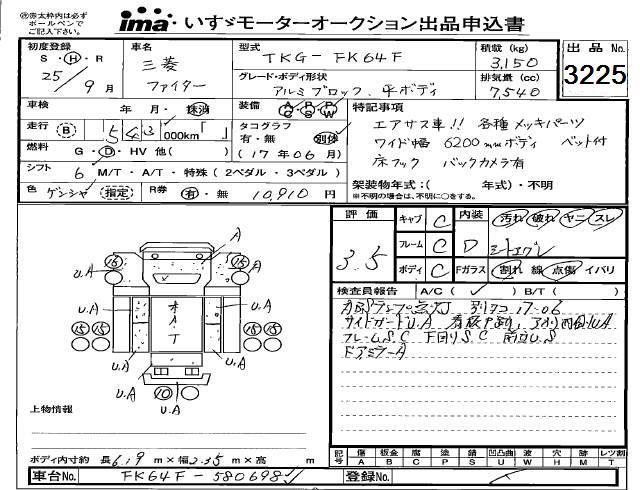 ㊟赤太枠内は必ず
ボールペンで
ご記入下さい。
ima いすゞモーターオークション出品申込書
初度登録
S・H・R
25年9月
車名
三菱
ファイター
型式
TKG-FK64F
グレード・ボディ形状
アルミブロック、平ボディ
積載(kg)
3,150
排気量(cc)
7,540
出品No
3225
車検 年・月・抹消
装備 A/C P/S P/W
走行 B 543,000km「 」
タコグラフ
有・無 別体
(17年06月)
燃料 G・D・HV 他( )
シフト 6 M/T・A/T・特殊(2ペダル・3ペダル)
色 ゲンシャ 指定 R券 有・無 10,910円
特記事項
エアサス車!! 各種メッキパーツ
ワイド幅 6200mmボディ ベット付
床フック バックカメラ有
架装物年式:( 年式)・不明
※不明の場合は、不明に○をする。
評価
3.5
キャブ C 内装 汚れ 破れ ヤニ スレ
フレーム C D シートエグレ
ボディ C Fガラス 割れ 線 点傷・イバリ
検査員報告 A/C( ✓ ) B/T( )
ABSランプ点灯 別タコ17.06
サイドガードU.A 看板 U.A
フレームS.C 下回りS.C U.S
ドアミラーA
15 A 15
U.A U.A
U.A U.A
15 15 ホイスト 15 15
U.A U.A
U.A 10 U.A
U.A
上物情報
ボディ内寸約 長6.19m×幅2.35m×高 m
記号 傷A 板金B 腐C 塗P 錆S 凹凸曲U 波W 穴H 跡M レツ割T
車台No. FK64F-580698 登録No.